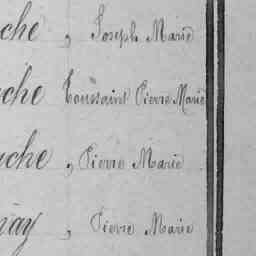 che , Joseph Marie
che Toussaint Pierre Marie
che , Pierre Marie
vay , Pierre Marie